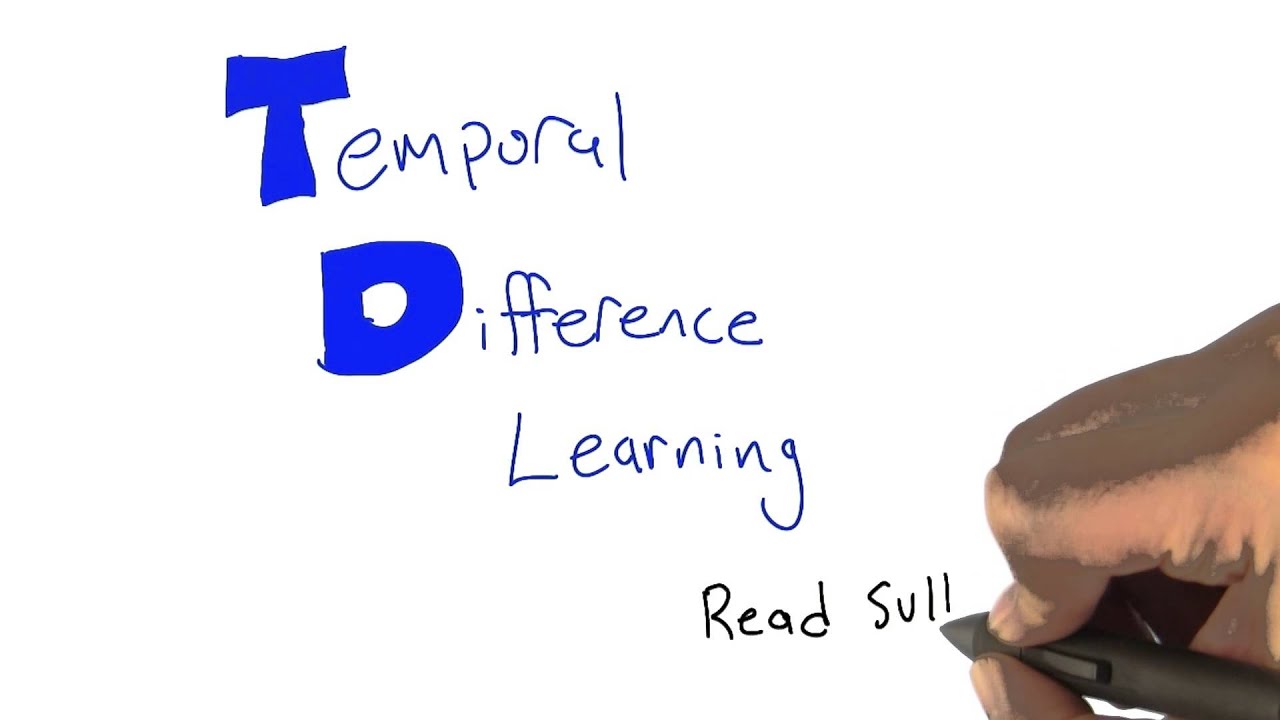 Temporal
Difference
Learning
Read Sull